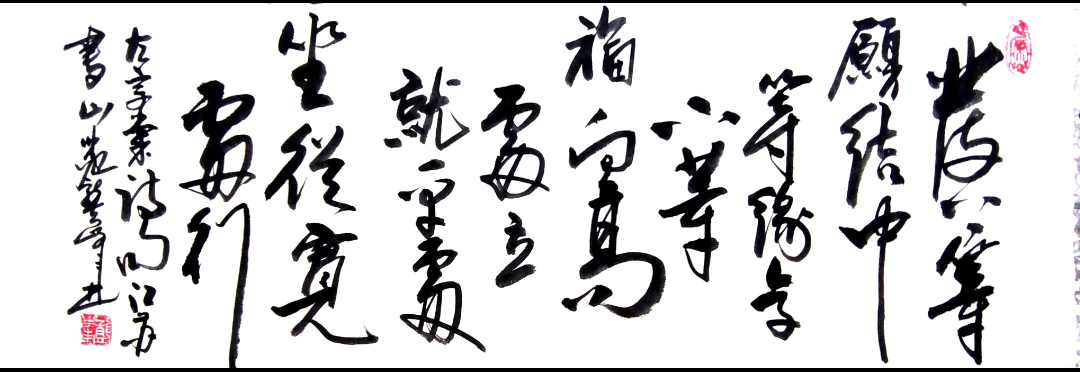 發上等
願結中
等緣享
下等
福向高
處立
就平處
坐從寬
處行
左宗棠詩句